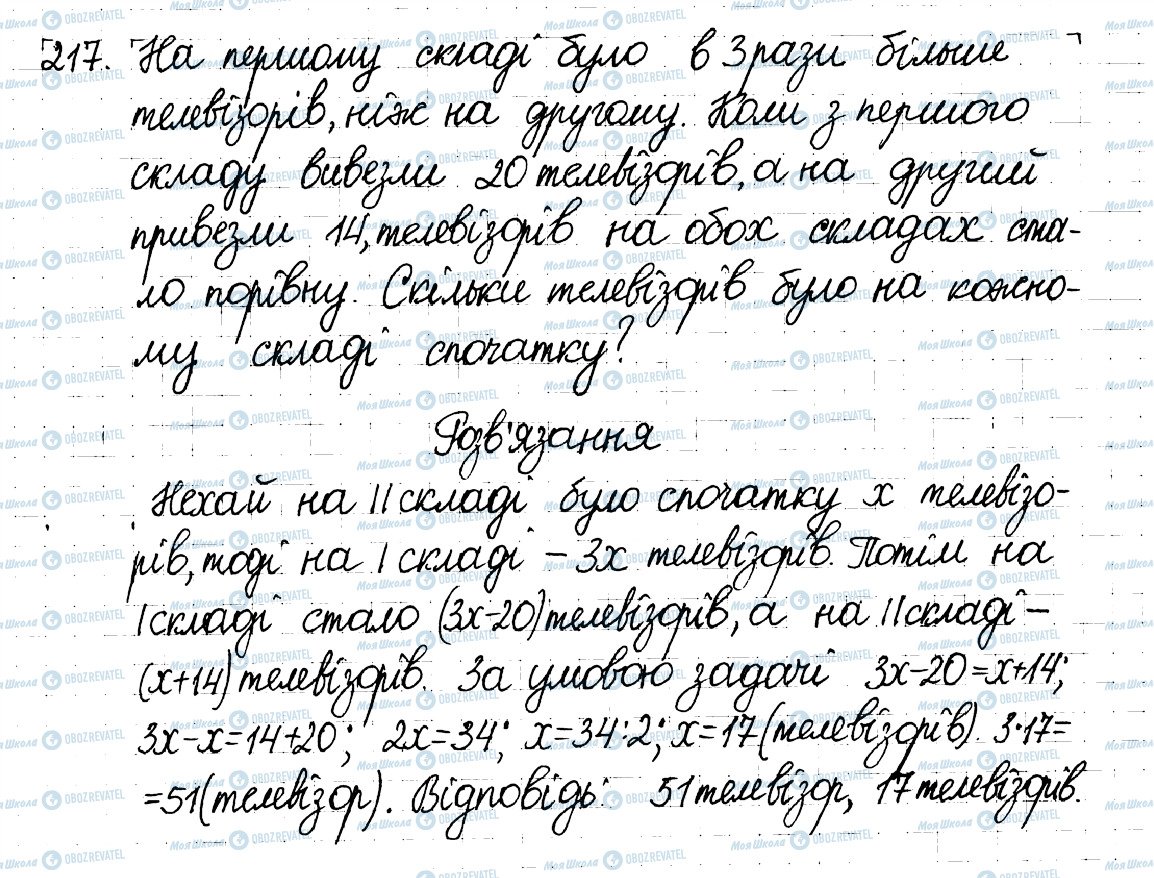 217. На першому складі було в 3 рази більше
телевізорів, ніж на другому. Коли з першого
складу вивезли 20 телевізорів, а на другий
привезли 14, телевізорів на обох складах ста-
ло порівну. Скільки телевізорів було на кожно-
му складі спочатку?
Розв'язання
Нехай на II складі було спочатку x телевізо-
рів, тоді на I складі – 3x телевізорів. Потім на
I складі стало (3x-20) телевізорів, а на II складі –
(x+14) телевізорів. За умовою задачі 3x-20=x+14;
3x-x=14+20; 2x=34; x=34:2; x=17 (телевізорів). 3·17=
=51 (телевізор). Відповідь: 51 телевізор, 17 телевізорів.